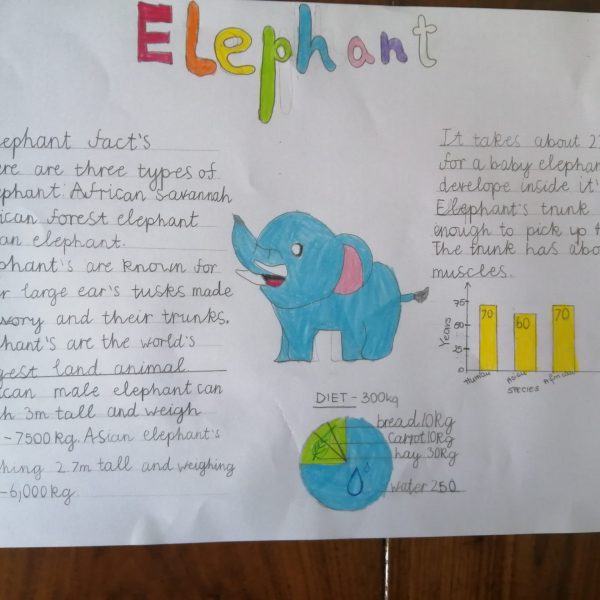 Elephant
elephant fact's
ere are three types of
ephant: African Savannah
rican forest elephant
an elephant.
ephant's are known for
r large ear's tusks made
ivory and their trunks.
phant's are the world's
gest land animal
ican male elephant can
h 3m tall and weigh
-7500kg. Asian elephant's
hing 2.7m tall and weighing
-6,000kg.
It takes about 2
for a baby elephan
develope inside it'
Elephant's trunk
enough to pick up t
The trunk has abo
muscles.
Years
75
50
25
0
70
60
70
Human
Asian
African
SPECIES
DIET - 300kg
bread 10kg
carrot 10kg
hay 30kg
water 250